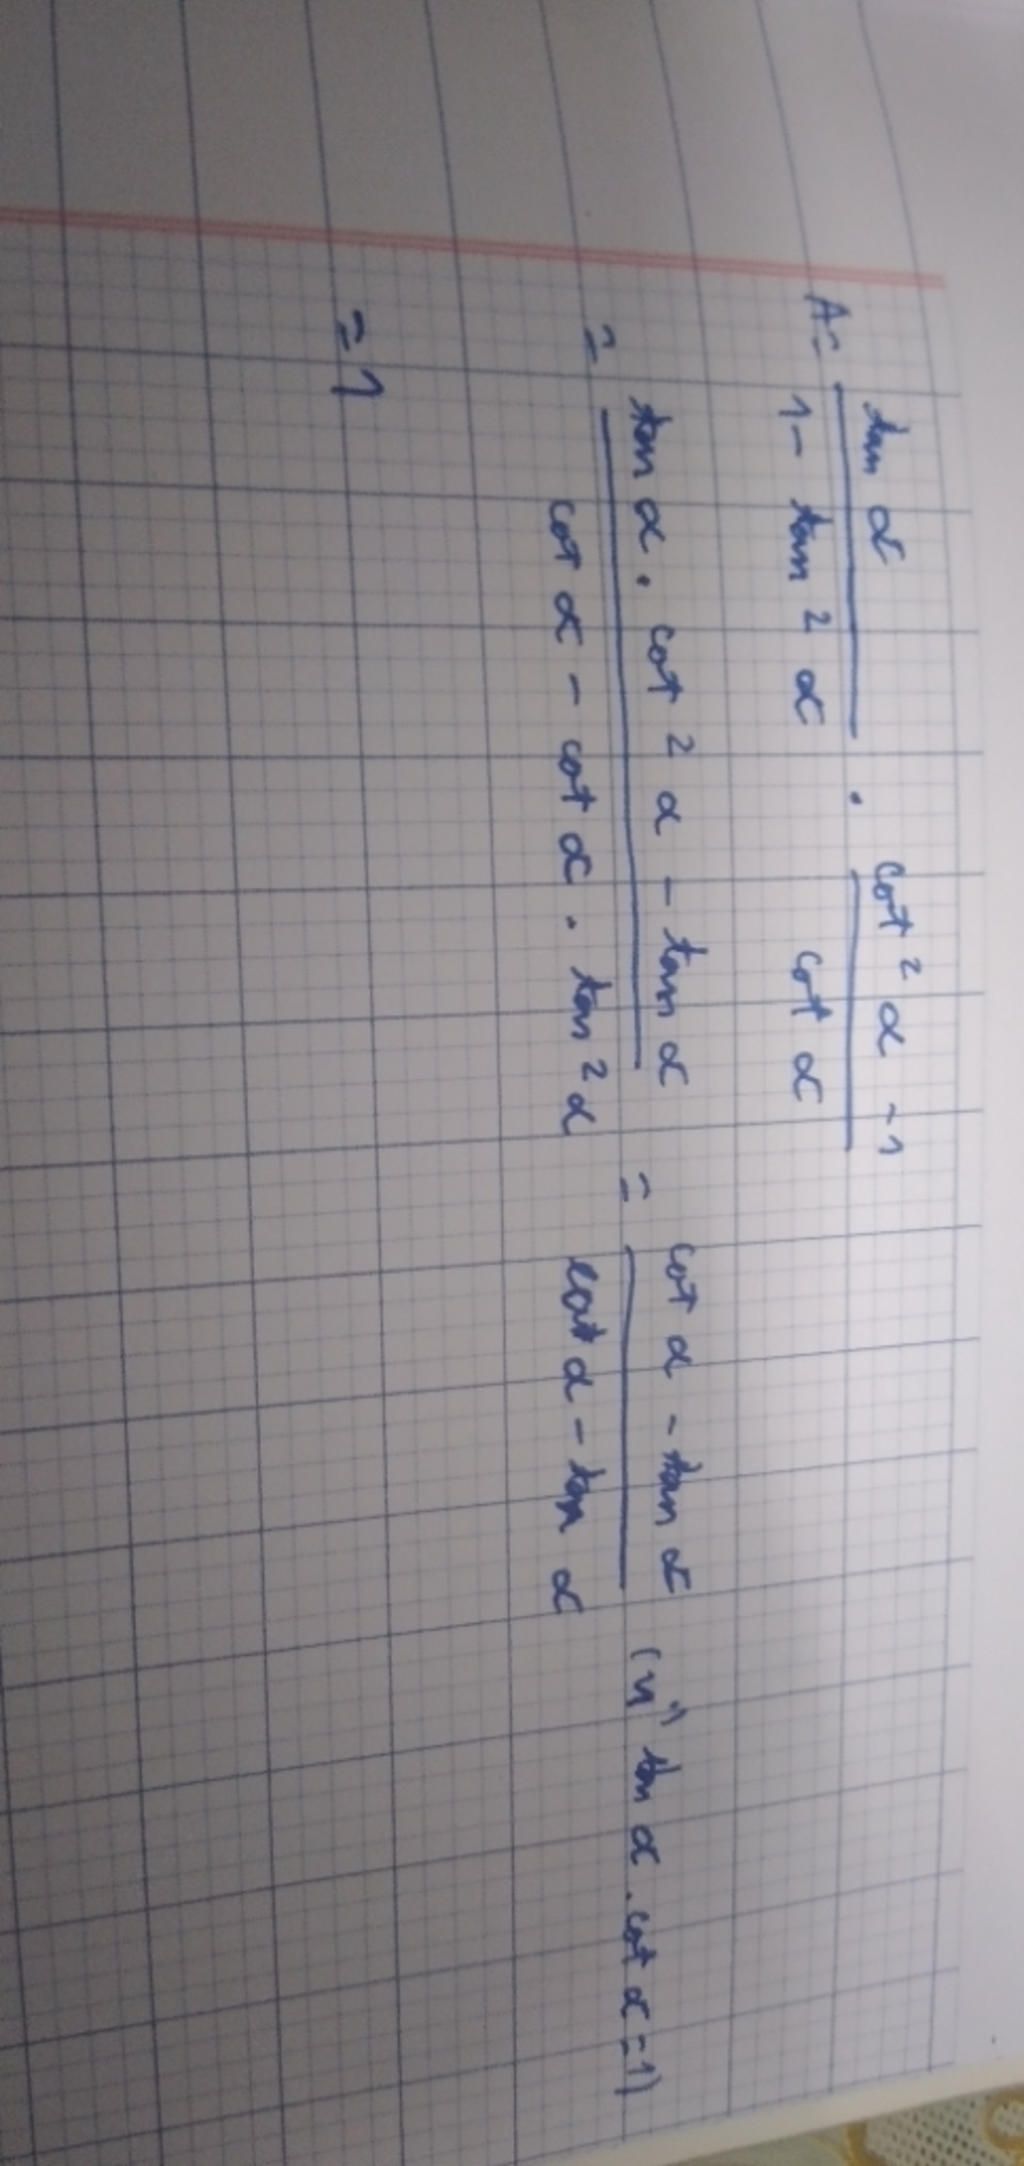 A = tan α / 1 - tan² α . cot² α - 1 / cot α
= tan α . cot² α - tan α / cot α - cot α . tan² α = cot α - tan α / cot α - tan α (vì tan α . cot α = 1)
= 1